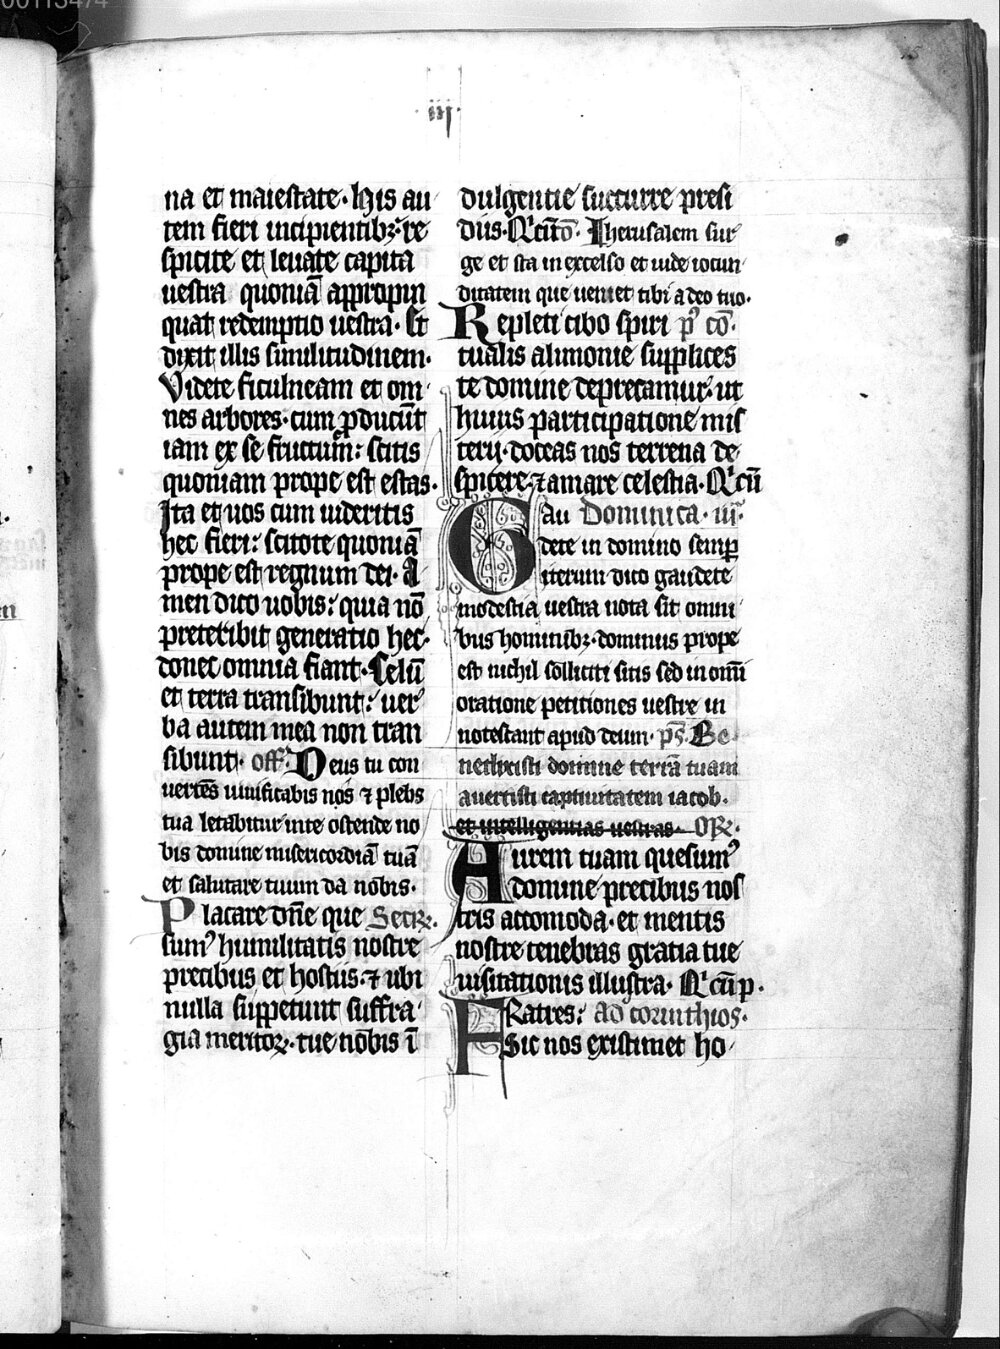 00113474
·iij·
na et maiestate. His au
tem fieri incipientibꝫ: re
spicite et leuate capita
uestra quoniā appropin
quat redemptio uestra. Et
dixit illis similitudinem.
Videte ficulneam et om
nes arbores. cum ꝓducūt
iam ex se fructum: scitis
quoniam prope est estas.
Ita et uos cum uideritis
hec fieri: scitote quoniā
prope est regnum dei. A
men dico uobis: quia nō
preteribit generatio hec.
donec omnia fiant. Celū
et terra transibunt: uer
ba autem mea non tran
sibunt. off. Deus tu con
uertēs uiuificabis nos ⁊ plebs
tua letabitur in te ostende no
bis domine misericordiā tuā
et salutare tuum da nobis.
Placare dn̄e que Secrꝫ.
sumꝰ humilitatis nostre
precibus et hostiis. ⁊ ubi
nulla suppetunt suffra
gia meritoꝝ. tue nobis ī
dulgentie succurre presi
diis. Qͥ cū. cō. Iherusalem sur
ge et sta in excelso et uide iocun
ditatem que ueniet tibi a deo tuo.
Repleti cibo spiri pꝰ cō.
tualis alimonie supplices
te domine deprecamur. ut
huius participatione mis
terij. doceas nos terrena de
spicere. ⁊ amare celestia. Qͥ cū
Gau Dominica. iij.
dete in domino semꝑ
iterum dico gaudete
modestia uestra nota sit omni
bus hominibꝫ. dominus prope
est nichil solliciti sitis sed in om̄i
oratione petitiones uestre in
notescant apud deum. ps̄. Be
nedixisti domine terrā tuam
auertisti captiuitatem iacob.
et intelligentias uestras. Or̄.
Aurem tuam quesumꝰ
domine precibus nos
tris accomoda. et mentis
nostre tenebras gratia tue
uisitationis illustra. Qͥ cū p.
FRatres: ad corinthios.
Sic nos existimet ho